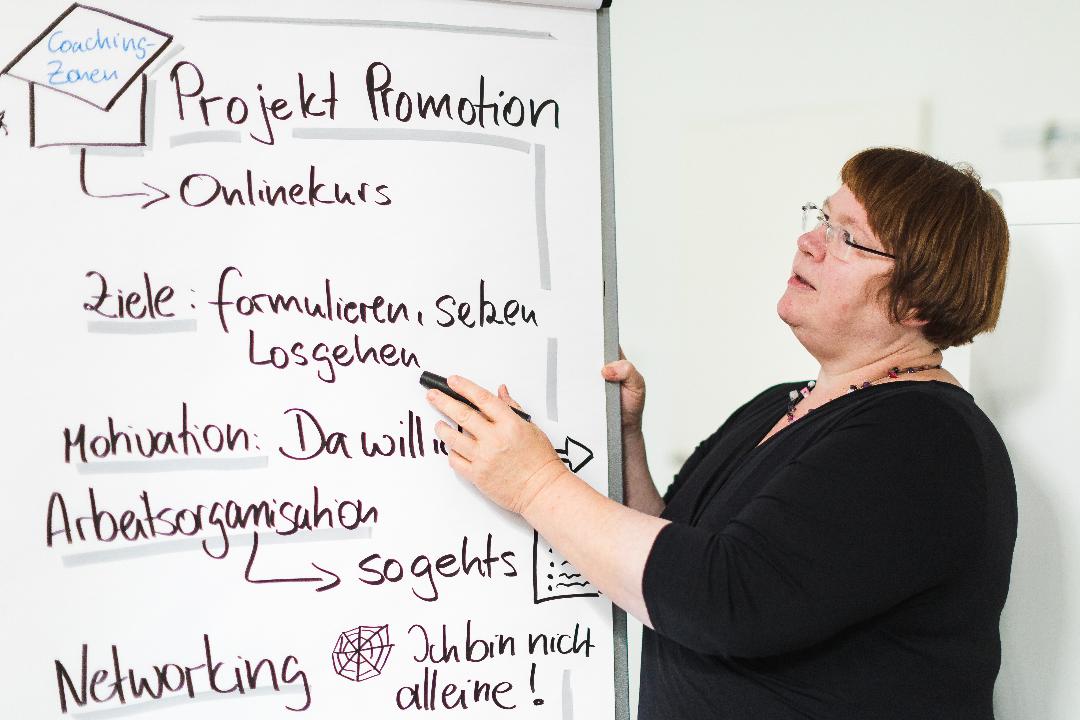 Coaching-
Zonen
Projekt Promotion
Onlinekurs
Ziele: formulieren, setzen
Losgehen
Motivation: Da will
Arbeitsorganisation
so gehts
Networking
Ich bin nicht
alleine!